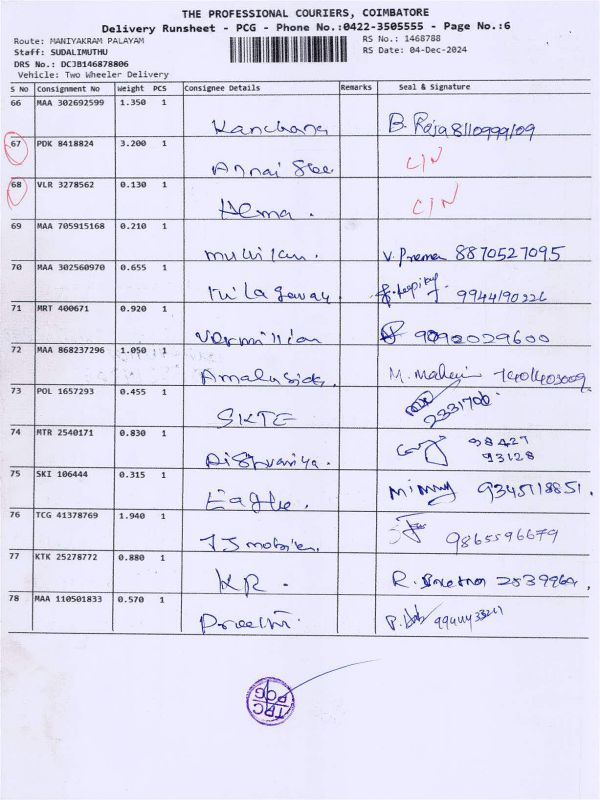 THE PROFESSIONAL COURIERS, COIMBATORE
Delivery Runsheet - PCG - Phone No.:0422-3505555 - Page No.:6
Route: MANIYAKRAM PALAYAM RS No.: 1468788
Staff: SUDALIMUTHU RS Date: 04-Dec-2024
DRS No.: DCJB146878806
Vehicle: Two Wheeler Delivery
S No Consignment No Weight PCS Consignee Details Remarks Seal & Signature
66 MAA 302692599 1.350 1
Kanchana B. Raja 8110999109
67 PDK 8418824 3.200 1
Annai Stee C/N
68 VLR 3278562 0.130 1
Hema. C/N
69 MAA 705915168 0.210 1
mukilan. V. Prema 8870527095
70 MAA 302560970 0.655 1
9944190226
71 MRT 400671 0.920 1
Vermillian 9092029600
72 MAA 868237296 1.050 1
M.
73 POL 1657293 0.455 1
SKTE 2331706
74 MTR 2540171 0.830 1
98427
93128
75 SKI 106444 0.315 1
Eagle. 9345118851.
76 TCG 41378769 1.940 1
9865596679
77 KTK 25278772 0.880 1
KR. R. 2539964.
78 MAA 110501833 0.570 1
Preethi. P.
TPC
PCG